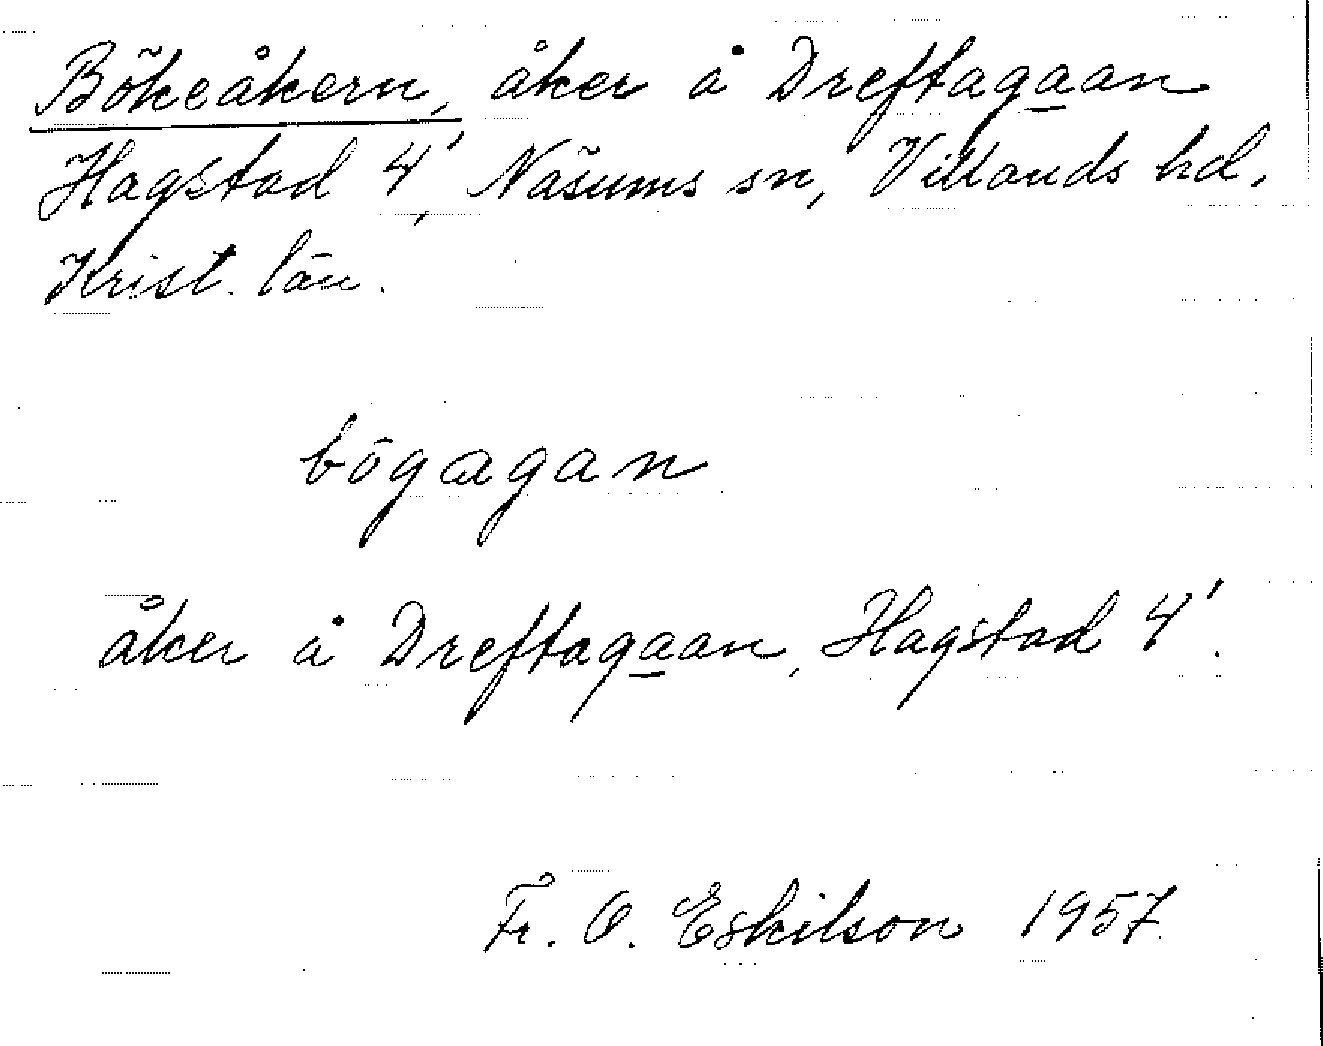 Bökeåkern, åker å Dreftagaan
Hagstad 4', Näsums sn, Villands hd,
Krist. län.
bögagan
åker å Dreftagaan, Hagstad 4'.
Fr. O. Eskilson 1957.